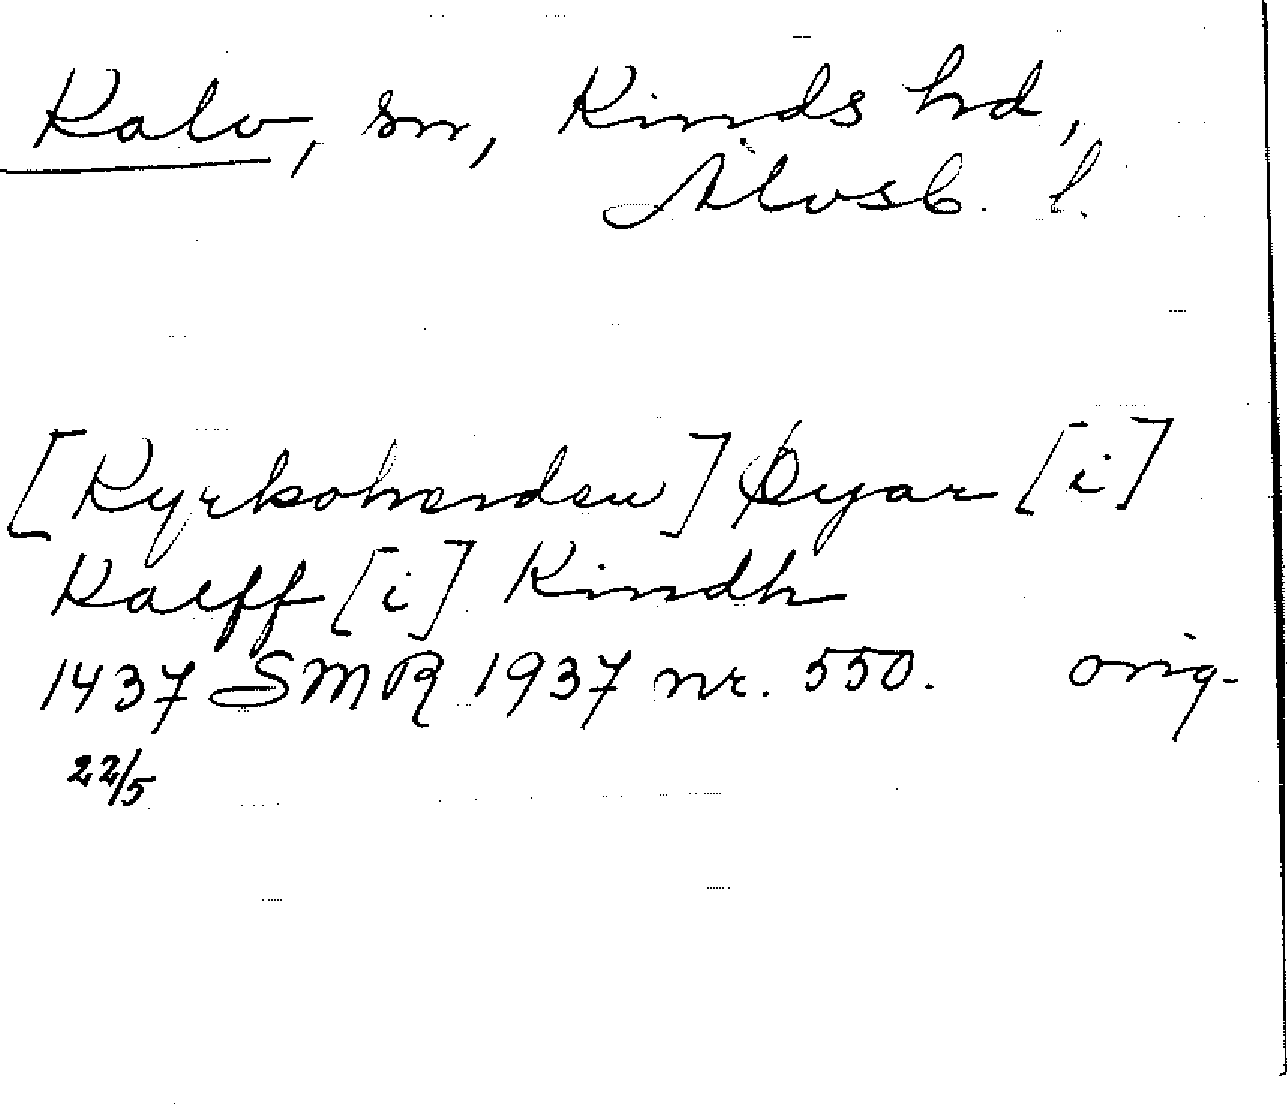 Kalv, sn, Kinds hd,
Älvsb. l.
[Kyrkoherden] Øyar [i]
Kalff [i] Kindh
1437 SMR 1937 nr. 550. orig.
22/5